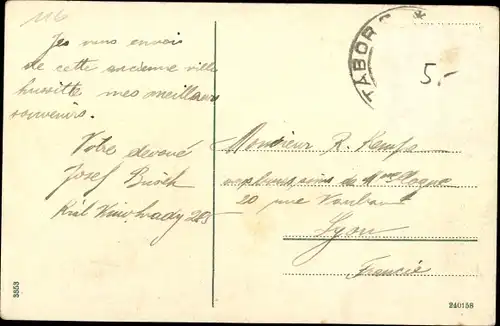 116
Je vous envois
de cette ancienne ville
hussitte mes meilleurs
souvenirs.
Votre devoué
Josef
Král Vinohrady 285
TABOR
5.-
Monsieur R. Kemps
aux bons soins de Mme
20 rue Vauban
Lyon
Francie
3553
240158